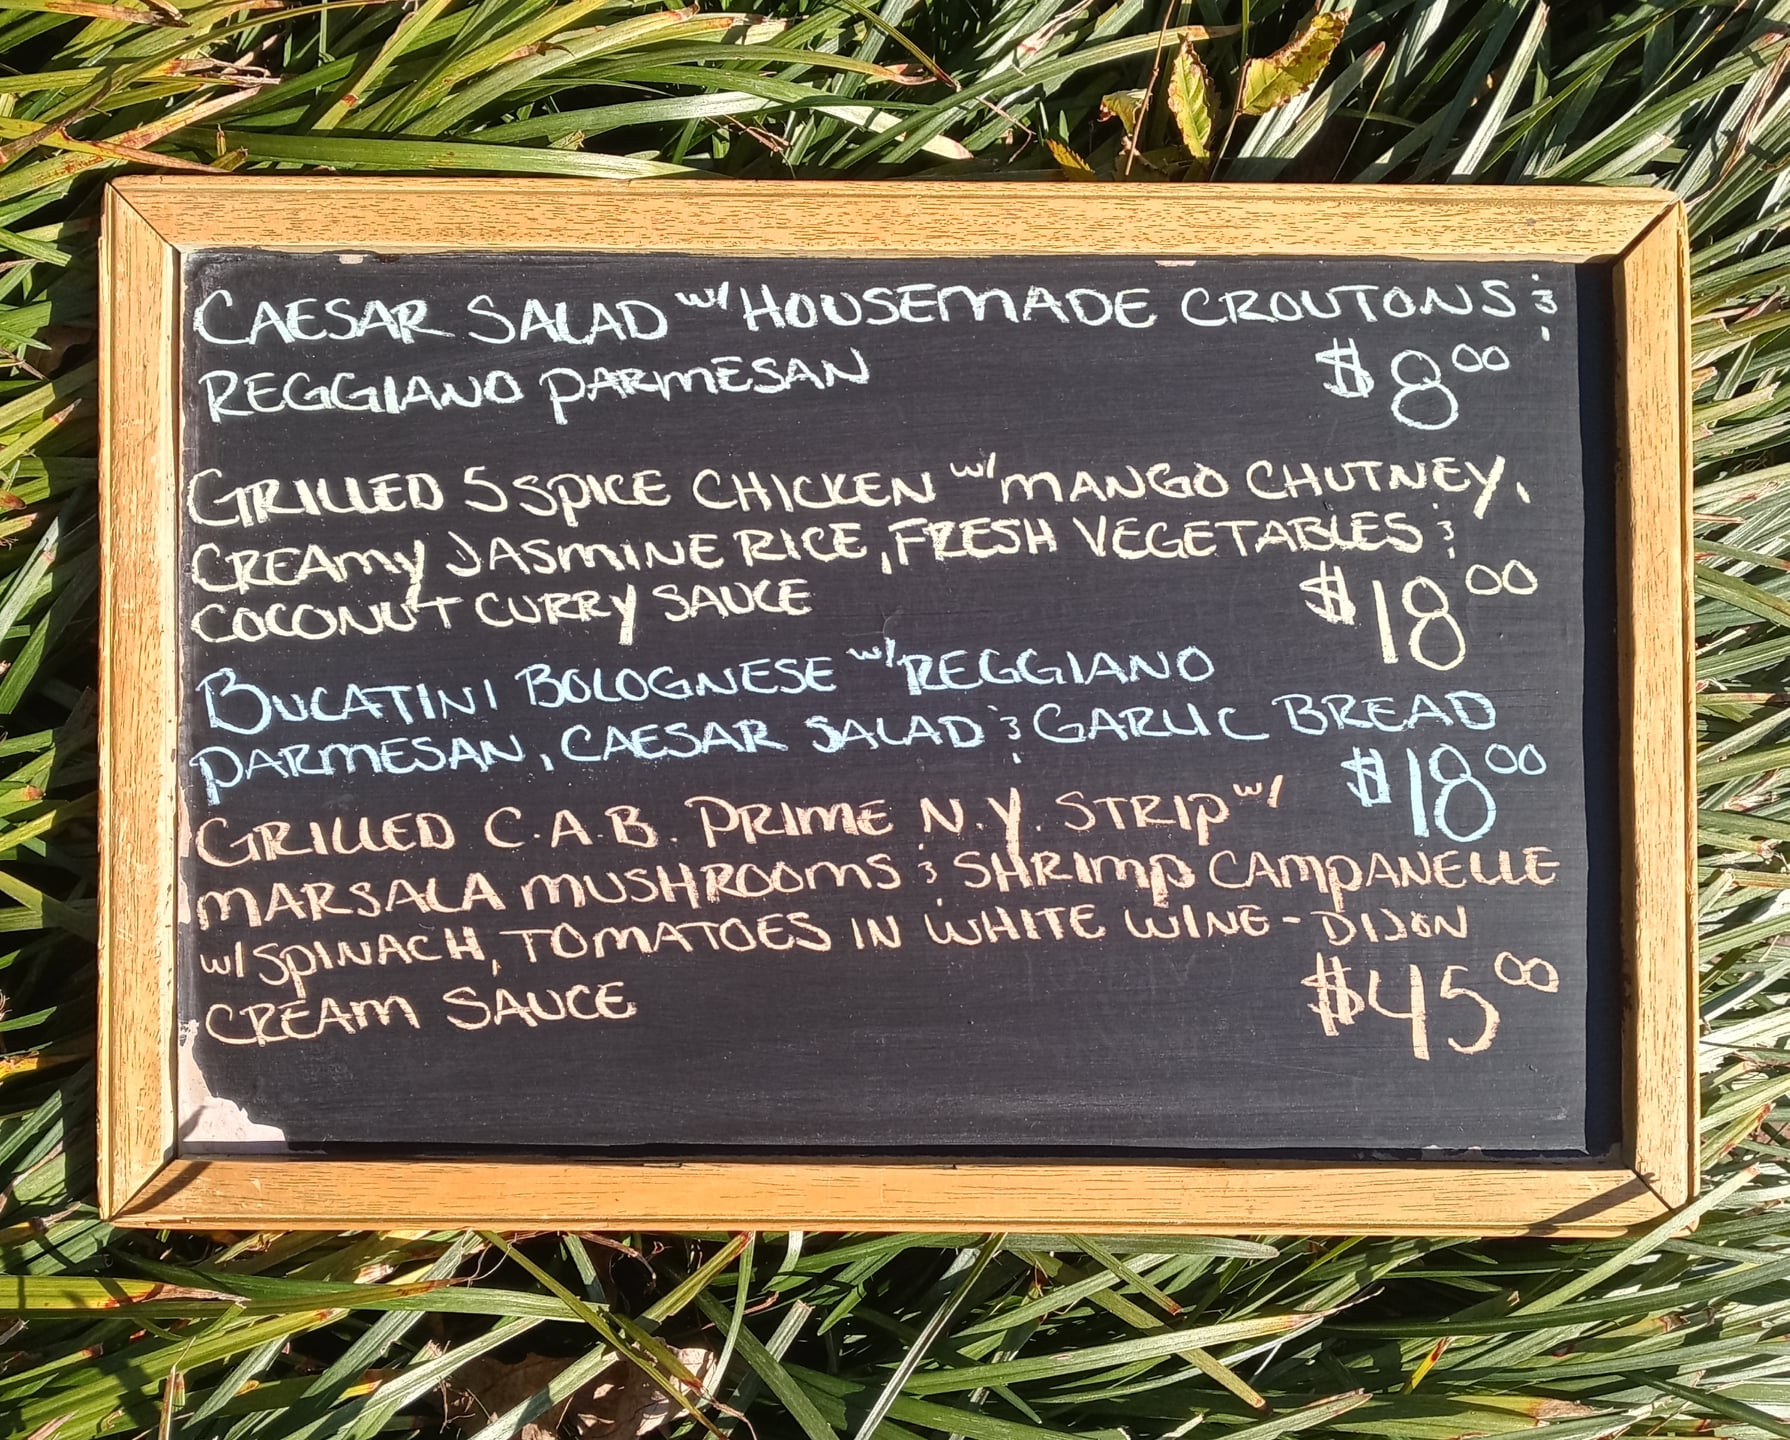 CAESAR SALAD w/ HOUSEMADE CROUTONS &
REGGIANO PARMESAN $8.00
GRILLED 5 SPICE CHICKEN w/ MANGO CHUTNEY,
CREAMY JASMINE RICE, FRESH VEGETABLES &
COCONUT CURRY SAUCE $18.00
BUCATINI BOLOGNESE w/ REGGIANO
PARMESAN, CAESAR SALAD & GARLIC BREAD
$18.00
GRILLED C.A.B. PRIME N.Y. STRIP w/
MARSALA MUSHROOMS & SHRIMP CAMPANELLE
w/ SPINACH, TOMATOES IN WHITE WINE-DIJON
CREAM SAUCE $45.00